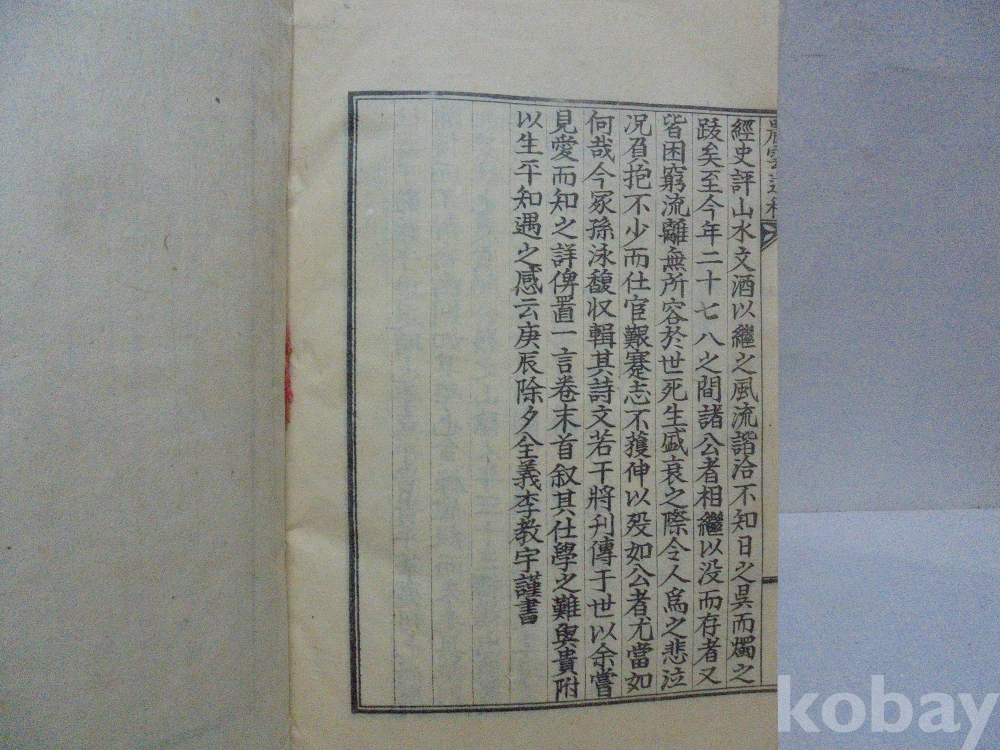 經史評山水文酒以繼之風流諧洽不知日之昃而燭之
跋矣至今年二十七八之間諸公者相繼以没而存者又
皆困窮流離無所容於世死生盛衰之際令人爲之悲泣
况負抱不少而仕宦艱蹇志不獲伸以歿如公者尤當如
何哉今冢孫泳馥収輯其詩文若干將刋傳于世以余嘗
見愛而知之詳俾置一言卷末首叙其仕學之難與貴附
以生平知遇之感云庚辰除夕全義李敎宇謹書
kobay